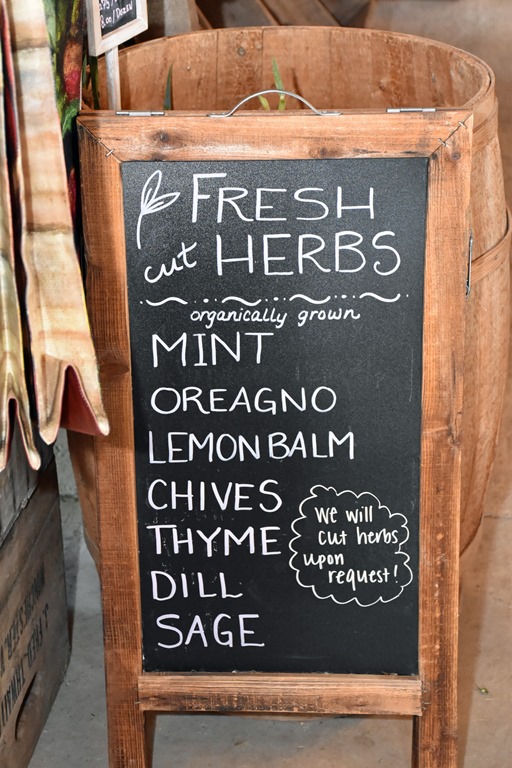 8.00/DOZEN
FRESH
cut HERBS
organically grown
MINT
OREAGNO
LEMON BALM
CHIVES
THYME
DILL
SAGE
We will
cut herbs
upon
request!